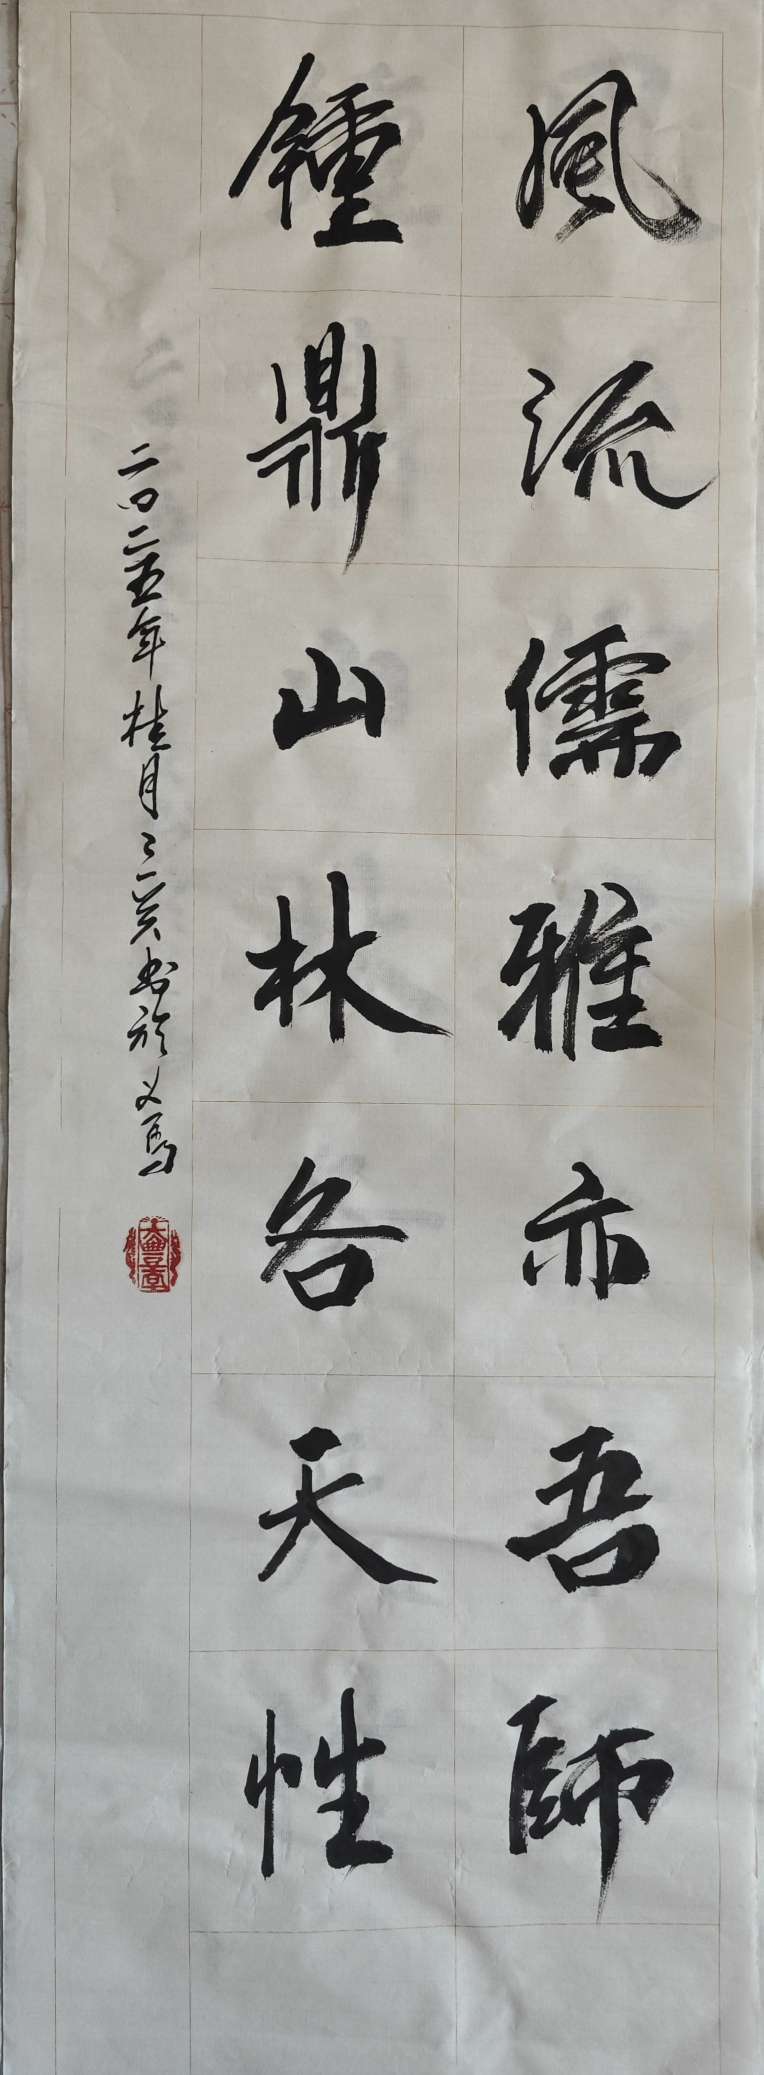 風流儒雅亦吾師
鍾鼎山林各天性
二〇二五年桂月
书於义烏